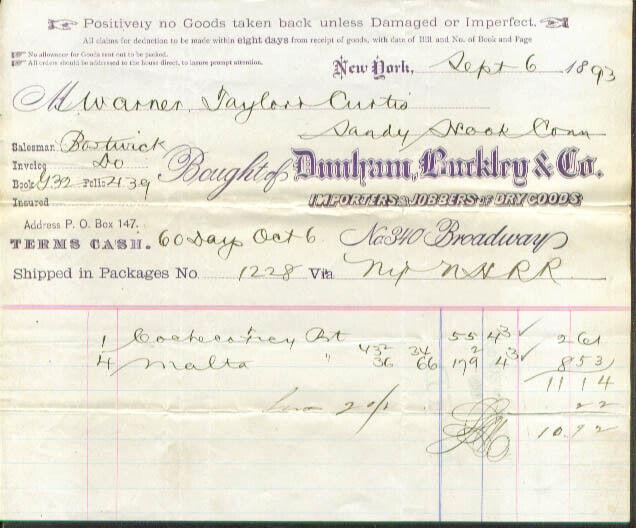 Positively no Goods taken back unless Damaged or Imperfect.
All claims for deduction to be made within eight days from receipt of goods, with date of Bill and No. of Book and Page
No allowance for Goods sent out to be packed.
All orders should be addressed to the house direct, to insure prompt attention.
New York, Sept 6 1893
M Warner Taylor Curtis
Sandy Hook Conn
Salesman Bostwick
Invoice Do
Book 932 Folio 2139
Insured
Bought of Dunham, Buckley & Co.
IMPORTERS & JOBBERS OF DRY GOODS
Address P. O. Box 147.
TERMS CASH. 60 Days Oct 6 No. 340 Broadway
Shipped in Packages No. 1228 Via NY NH RR
1 Pt 55 4 3 2 61
4 Malta " 36 66 179 2 4 3 8 53
11 14
2% 22
10.92